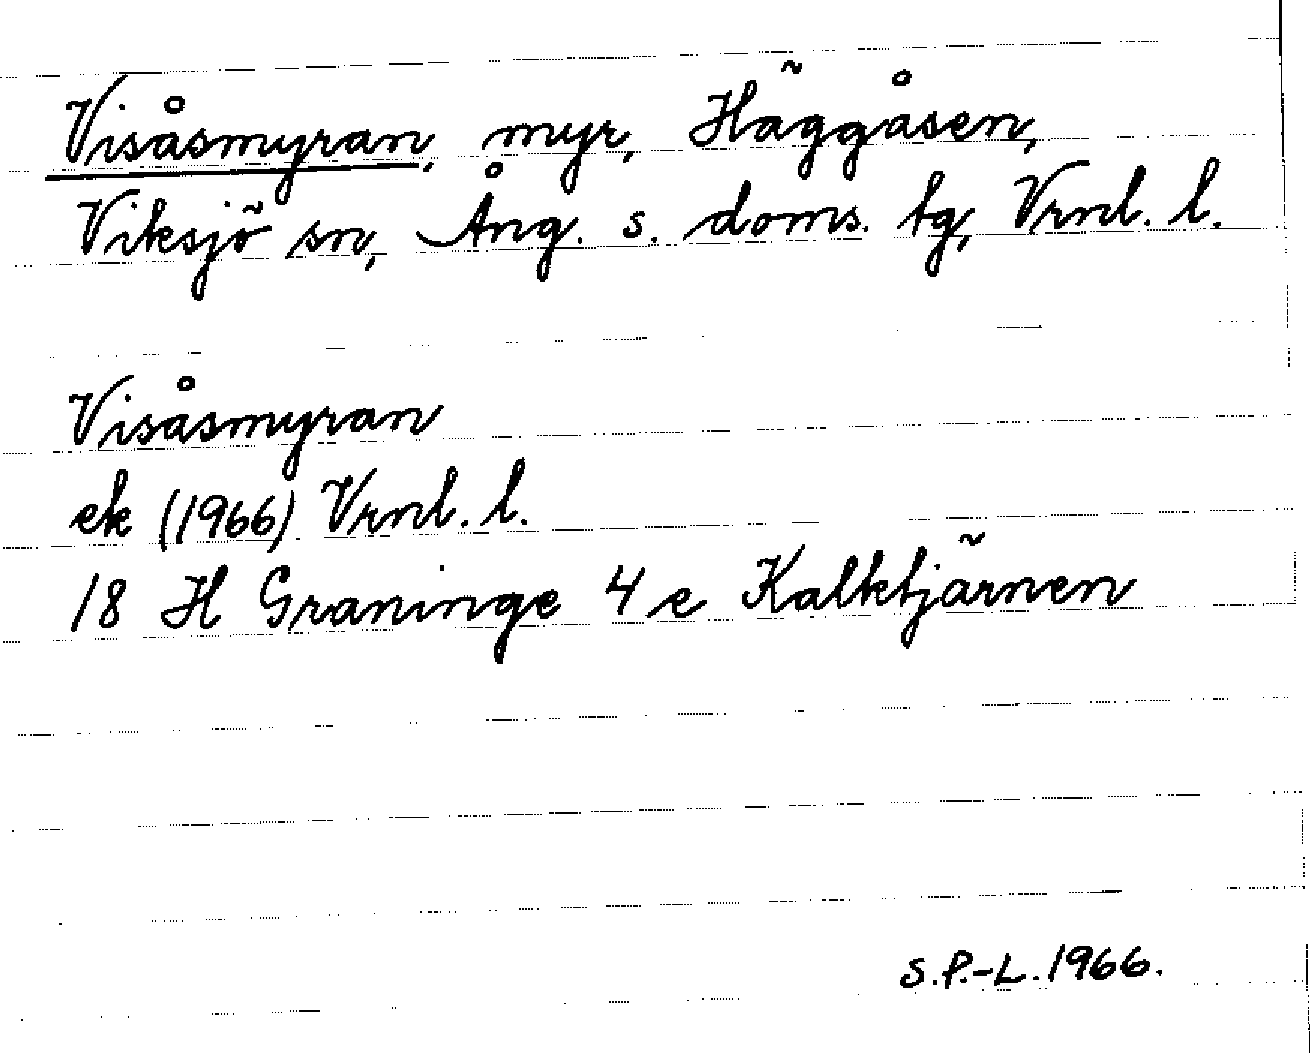 Visåsmyran, myr, Häggåsen,
Viksjö sn, Ång. s. doms. tg, Vrnl. l.
Visåsmyran
ek (1966) Vrnl. l.
18 H Graninge 4 e Kalktjärnen
S.P.-L. 1966.